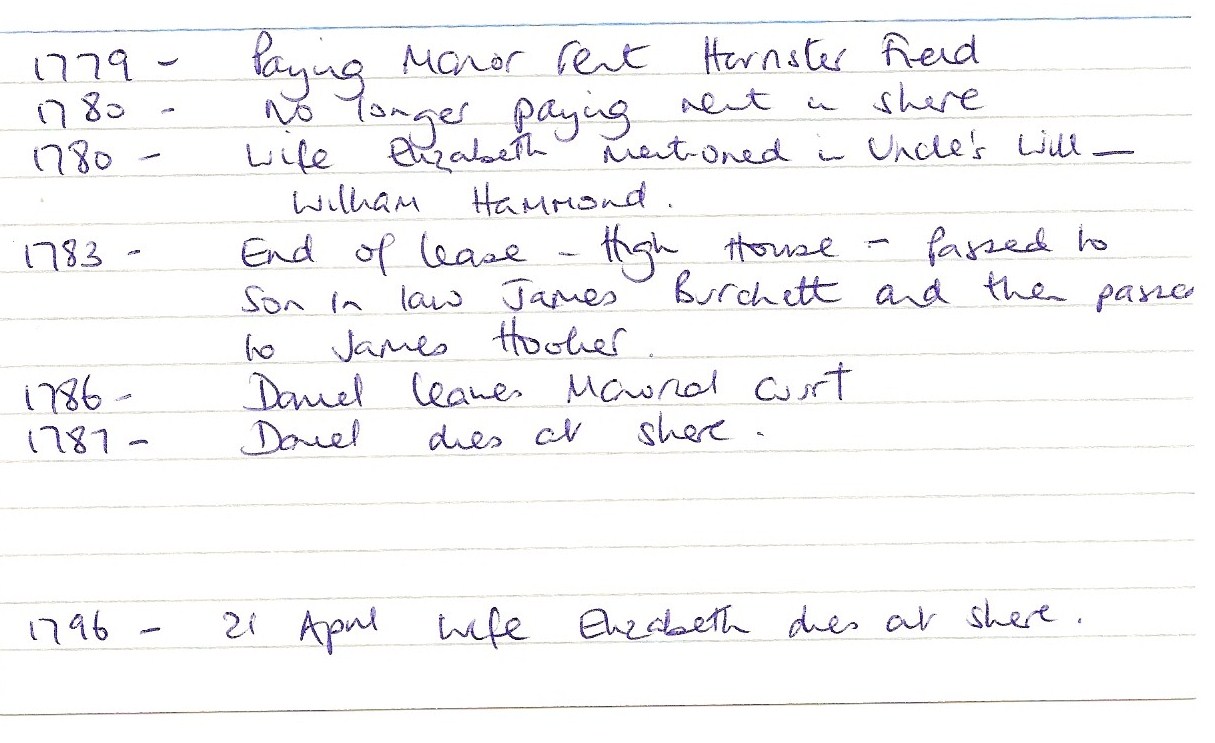 1779 - Paying Manor rent Hornster Field
1780 - No longer paying rent in Shere
1780 - Wife Elizabeth mentioned in Uncle's Will —
William Hammond.
1783 - End of lease - High House - Passed to
Son in law James Burchett and then passed
to James Hooker.
1786 - Daniel leaves Manorial Court
1787 - Daniel dies at Shere.
1796 - 21 April Wife Elizabeth dies at Shere.